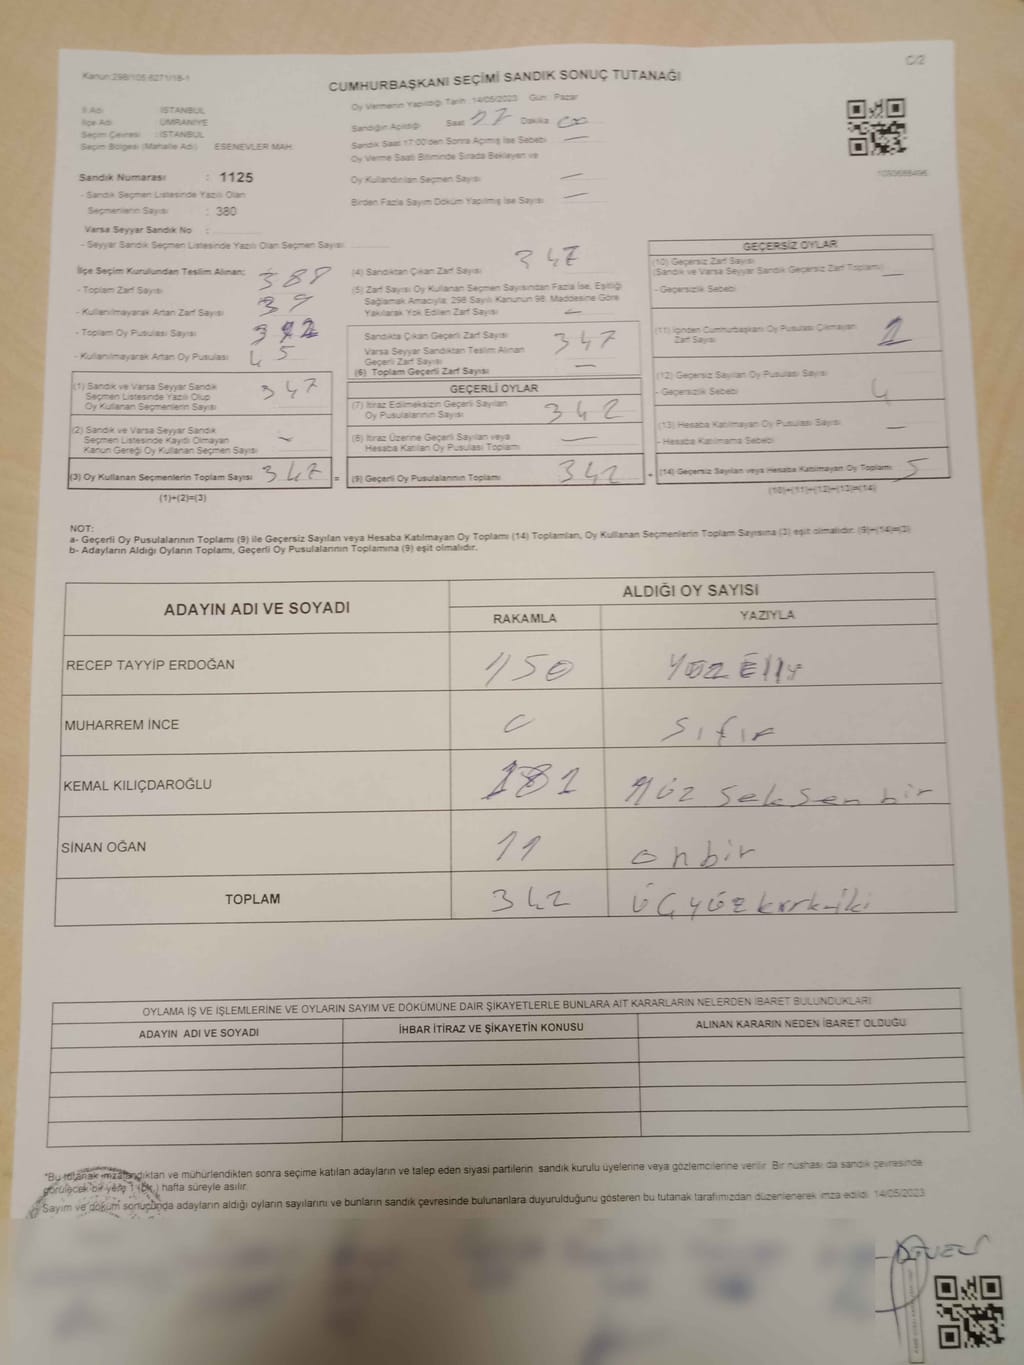 Kanun:298/105.6271/18-1
C/2
CUMHURBAŞKANI SEÇİMİ SANDIK SONUÇ TUTANAĞI
İl Adı : İSTANBUL
İlçe Adı : ÜMRANİYE
Seçim Çevresi : İSTANBUL
Seçim Bölgesi (Mahalle Adı) ESENEVLER MAH.
Oy Vermenin Yapıldığı Tarih : 14/05/2023 Gün : Pazar
Sandığın Açıldığı Saat 17 Dakika 00
Sandık Saat 17:00'den Sonra Açılmış İse Sebebi —
Oy Verme Saati Bitiminde Sırada Bekleyen ve
Oy Kullandırılan Seçmen Sayısı —
Birden Fazla Sayım Döküm Yapılmış İse Sayısı —
1093688496
Sandık Numarası : 1125
- Sandık Seçmen Listesinde Yazılı Olan
Seçmenlerin Sayısı : 380
Varsa Seyyar Sandık No :
- Seyyar Sandık Seçmen Listesinde Yazılı Olan Seçmen Sayısı:
İlçe Seçim Kurulundan Teslim Alınan;
- Toplam Zarf Sayısı 388
- Kullanılmayarak Artan Zarf Sayısı
- Toplam Oy Pusulası Sayısı 392
- Kullanılmayarak Artan Oy Pusulası 45
(1) Sandık ve Varsa Seyyar Sandık
Seçmen Listesinde Yazılı Olup
Oy Kullanan Seçmenlerin Sayısı 347
(2) Sandık ve Varsa Seyyar Sandık
Seçmen Listesinde Kaydı Olmayan
Kanun Gereği Oy Kullanan Seçmen Sayısı —
(3) Oy Kullanan Seçmenlerin Toplam Sayısı 347 =
(1)+(2)=(3)
(4) Sandıktan Çıkan Zarf Sayısı 347
(5) Zarf Sayısı Oy Kullanan Seçmen Sayısından Fazla İse, Eşitliği
Sağlamak Amacıyla; 298 Sayılı Kanunun 98. Maddesine Göre
Yakılarak Yok Edilen Zarf Sayısı —
Sandıkta Çıkan Geçerli Zarf Sayısı 347
Varsa Seyyar Sandıktan Teslim Alınan
Geçerli Zarf Sayısı —
(6) Toplam Geçerli Zarf Sayısı
GEÇERLİ OYLAR
(7) İtiraz Edilmeksizin Geçerli Sayılan
Oy Pusulalarının Sayısı 342
(8) İtiraz Üzerine Geçerli Sayılan veya
Hesaba Katılan Oy Pusulası Toplamı —
(9) Geçerli Oy Pusulalarının Toplamı 342 +
GEÇERSİZ OYLAR
(10) Geçersiz Zarf Sayısı
(Sandık ve Varsa Seyyar Sandık Geçersiz Zarf Toplamı) —
- Geçersizlik Sebebi
(11) İçinden Cumhurbaşkanı Oy Pusulası Çıkmayan
Zarf Sayısı 1
(12) Geçersiz Sayılan Oy Pusulası Sayısı 4
- Geçersizlik Sebebi
(13) Hesaba Katılmayan Oy Pusulası Sayısı —
- Hesaba Katılmama Sebebi
(14) Geçersiz Sayılan veya Hesaba Katılmayan Oy Toplamı 5
(10)+(11)+(12)+(13)=(14)
NOT:
a- Geçerli Oy Pusulalarının Toplamı (9) ile Geçersiz Sayılan veya Hesaba Katılmayan Oy Toplamı (14) Toplamları, Oy Kullanan Seçmenlerin Toplam Sayısına (3) eşit olmalıdır. (9)+(14)=(3)
b- Adayların Aldığı Oyların Toplamı, Geçerli Oy Pusulalarının Toplamına (9) eşit olmalıdır.
ADAYIN ADI VE SOYADI
ALDIĞI OY SAYISI
RAKAMLA YAZIYLA
RECEP TAYYİP ERDOĞAN 150 Yüz Elly
MUHARREM İNCE 0 sıfır
KEMAL KILIÇDAROĞLU 181 Yüz seksen bir
SİNAN OĞAN 11 onbir
TOPLAM 342 üçyüz kırkiki
OYLAMA İŞ VE İŞLEMLERİNE VE OYLARIN SAYIM VE DÖKÜMÜNE DAİR ŞİKAYETLERLE BUNLARA AİT KARARLARIN NELERDEN İBARET BULUNDUKLARI
ADAYIN ADI VE SOYADI İHBAR İTİRAZ VE ŞİKAYETİN KONUSU ALINAN KARARIN NEDEN İBARET OLDUĞU
*Bu tutanak imzalandıktan ve mühürlendikten sonra seçime katılan adayların ve talep eden siyasi partilerin sandık kurulu üyelerine veya gözlemcilerine verilir. Bir nüshası da sandık çevresinde
görülecek bir yere 1 (bir) hafta süreyle asılır.
Sayım ve döküm sonucunda adayların aldığı oyların sayılarını ve bunların sandık çevresinde bulunanlara duyurulduğunu gösteren bu tutanak tarafımızdan düzenlenerek imza edildi. 14/05/2023